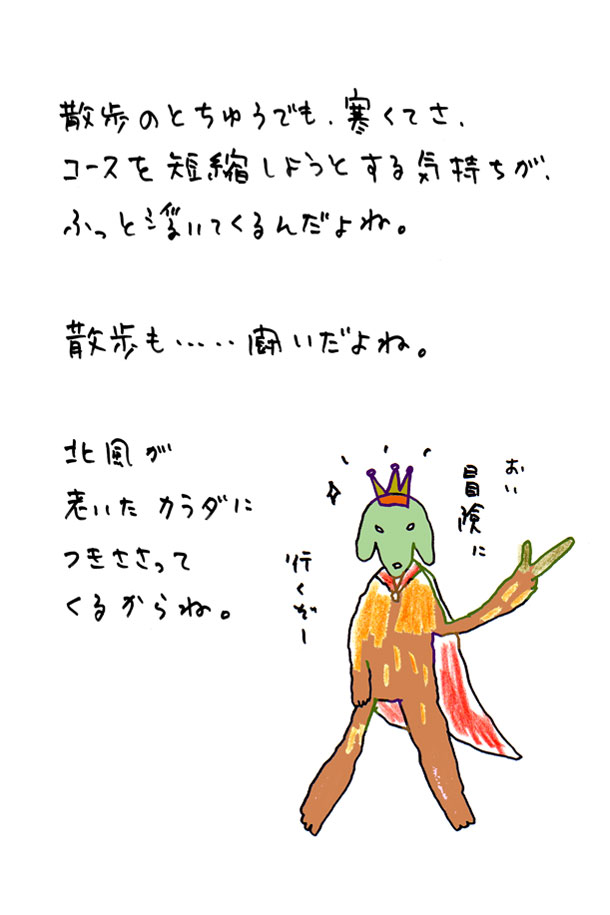 散歩のとちゅうでも、寒くてさ、
コースを短縮しようとする気持ちが、
ふっと浮いてくるんだよね。
散歩も……闘いだよね。
北風が
老いたカラダに
つきささって
くるからね。
おい
冒険に
行くぞー